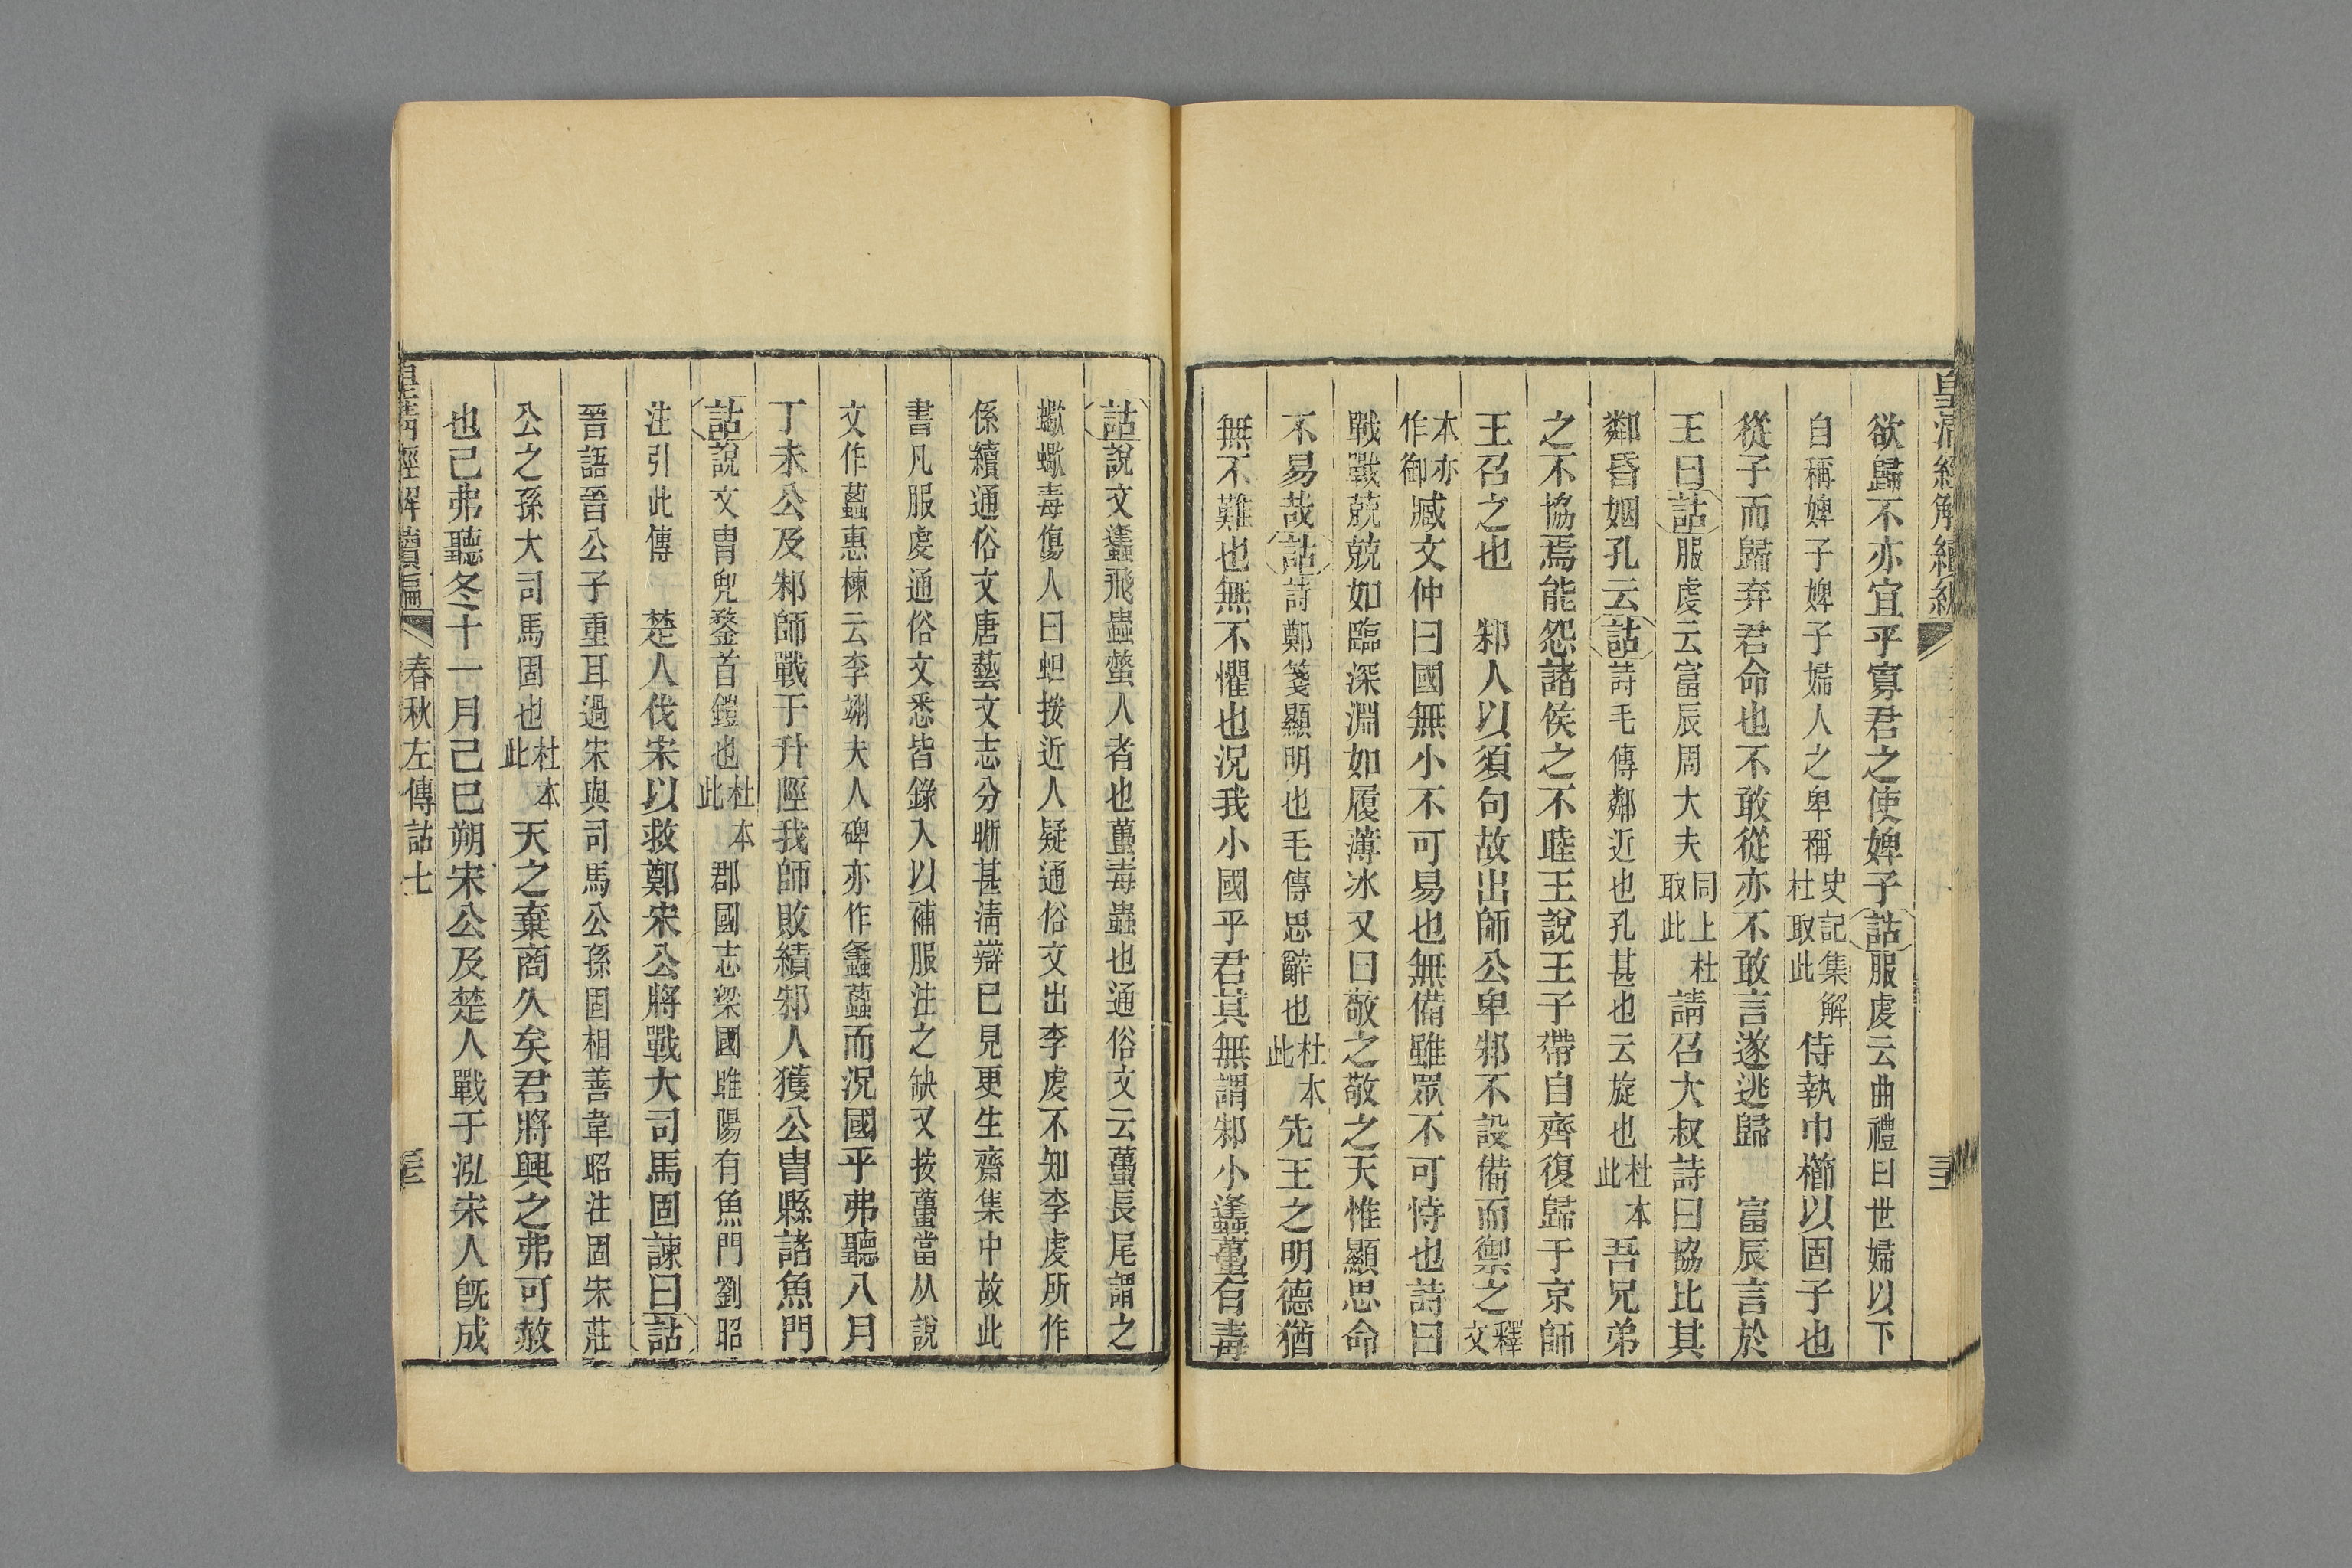 皇清經解續編
欲歸不亦宜乎寡君之使婢子詁服虔云曲禮曰世婦以下
自稱婢子婢子婦人之卑稱史記集解杜取此侍執巾櫛以固子也
從子而歸弃君命也不敢從亦不敢言遂逃歸　富辰言於
王曰詁服虔云富辰周大夫同上杜取此請召大叔詩曰協比其
鄰昏姻孔云詁詩毛傳鄰近也孔甚也云旋也杜本此吾兄弟
之不協焉能怨諸侯之不睦王說王子帶自齊復歸于京師
王召之也　邾人以須句故出師公卑邾不設備而禦之釋文
本亦作御臧文仲曰國無小不可易也無備雖眾不可恃也詩曰
戰戰兢兢如臨深淵如履薄冰又曰敬之敬之天惟顯思命
不易哉詁詩鄭箋顯明也毛傳思辭也杜本此先王之明德猶
無不難也無不懼也況我小國乎君其無謂邾小蠭蠆有毒
詁說文蠭飛蟲螫人者也蠆毒蟲也通俗文云蠆長尾謂之
蠍蠍毒傷人曰蛆按近人疑通俗文出李虔不知李虔所作
係續通俗文唐藝文志分晰甚淸辯已見更生齋集中故此
書凡服虔通俗文悉皆錄入以補服注之缺又按蠆當从說
文作蠚惠棟云李翊夫人碑亦作蠭蠚而況國乎弗聽八月
丁未公及邾師戰于升陘我師敗績邾人獲公胄縣諸魚門
詁說文胄兜鍪首鎧也杜本此郡國志梁國睢陽有魚門劉昭
注引此傳　楚人伐宋以救鄭宋公將戰大司馬固諫曰詁
晉語晉公子重耳過宋與司馬公孫固相善韋昭注固宋莊
公之孫大司馬固也杜本此天之棄商久矣君將興之弗可赦
也已弗聽冬十一月己巳朔宋公及楚人戰于泓宋人旣成
皇淸經解續編　春秋左傳詁七